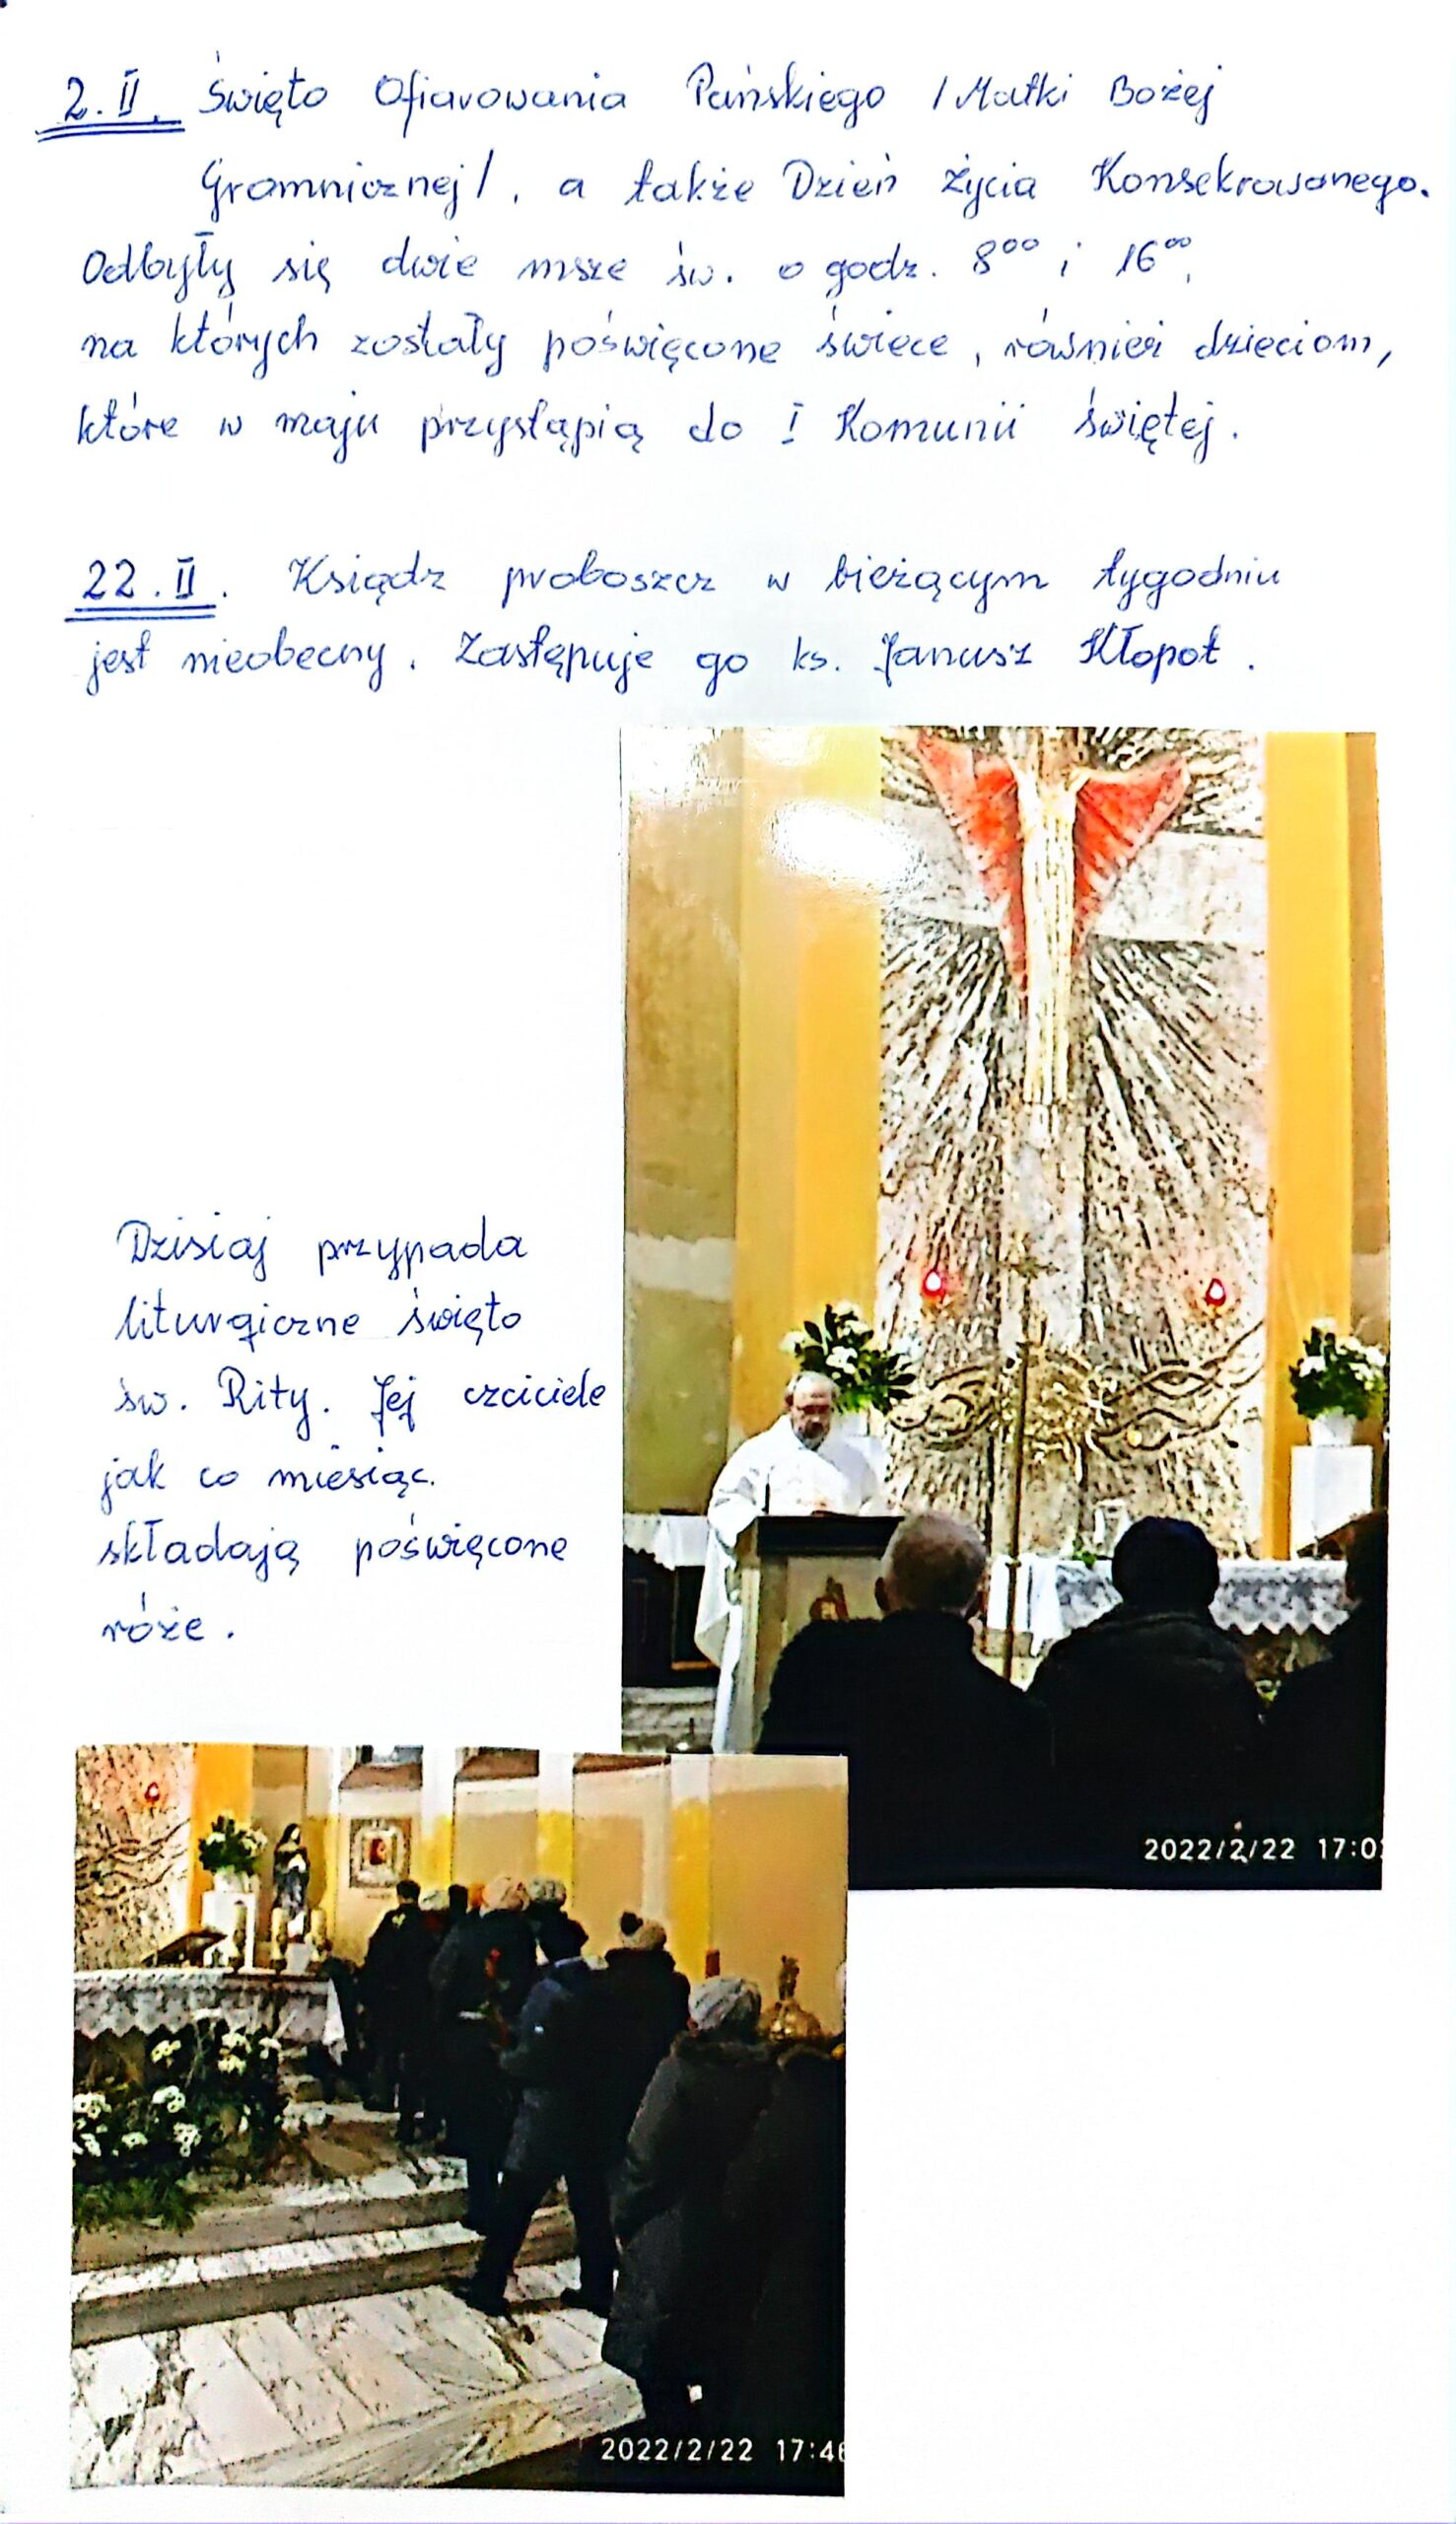 2.II. Święto Ofiarowania Pańskiego /Matki Bożej
Gromnicznej/, a także Dzień Życia Konsekrowanego.
Odbyły się dwie msze św. o godz. 8⁰⁰ i 16⁰⁰,
na których zostały poświęcone świece, również dzieciom,
które w maju przystąpią do I Komunii świętej.
22.II. Ksiądz proboszcz w bieżącym tygodniu
jest nieobecny. Zastępuje go ks. Janusz Kłopot.
Dzisiaj przypada
liturgiczne święto
św. Rity. Jej czciciele
jak co miesiąc.
składają poświęcone
róże.
2022/2/22 17:0
2022/2/22 17:46